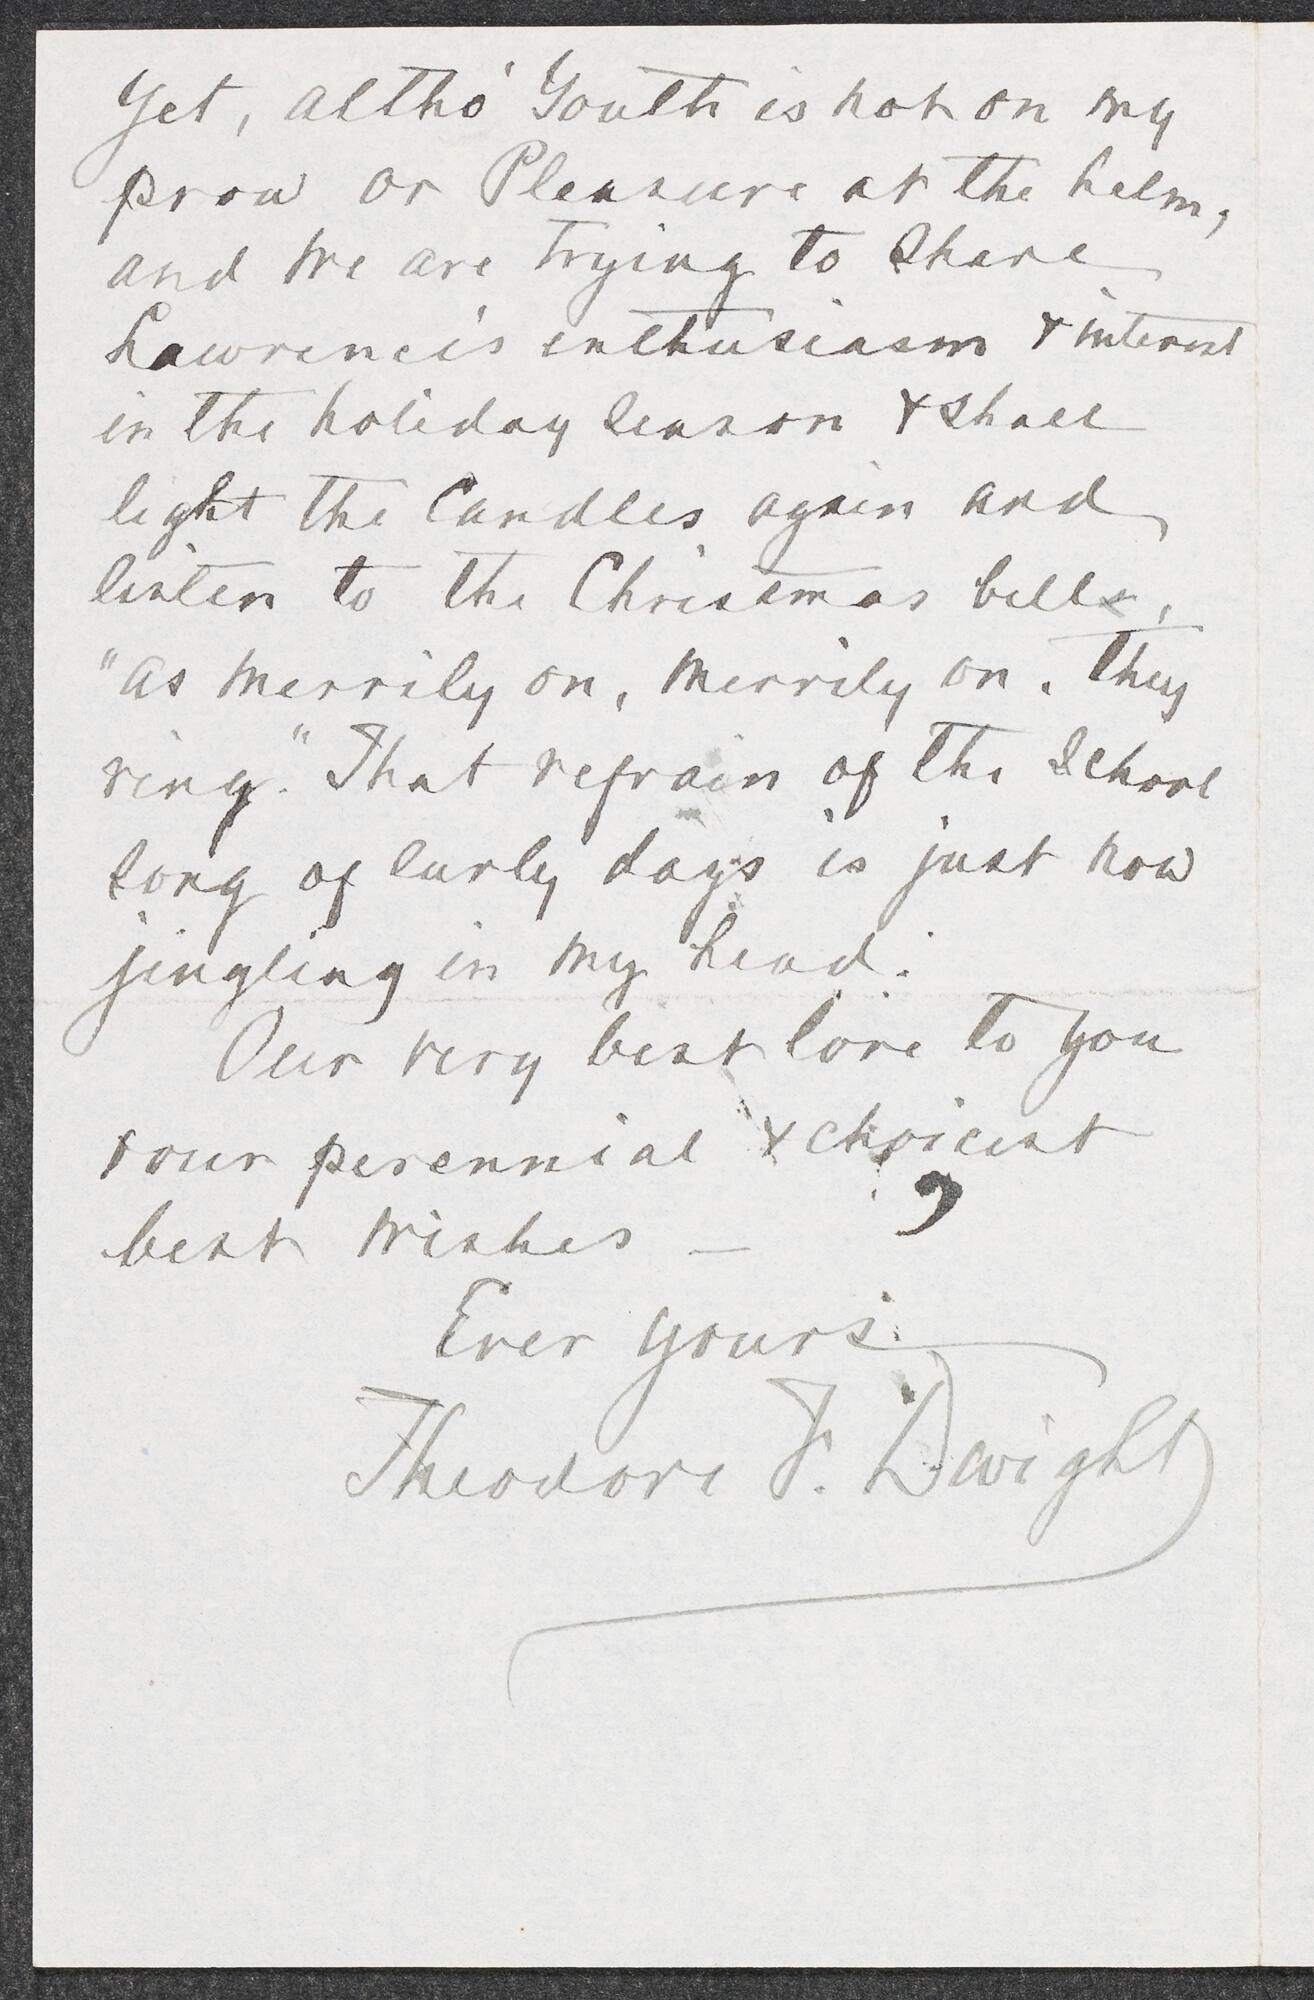 Yet, altho' Youth is not on my
prow or Pleasure at the helm,
and we are trying to share
Lawrence's enthusiasm & interest
in the holiday season & shall
light the Candles again and
listen to the Christmas bells,
"as merrily on, merrily on, they
ring." That refrain of the School
song of early days is just now
jingling in my head.
Our very best love to you
& our perennial & choicest
best wishes —
Ever yours
Theodore F. Dwight